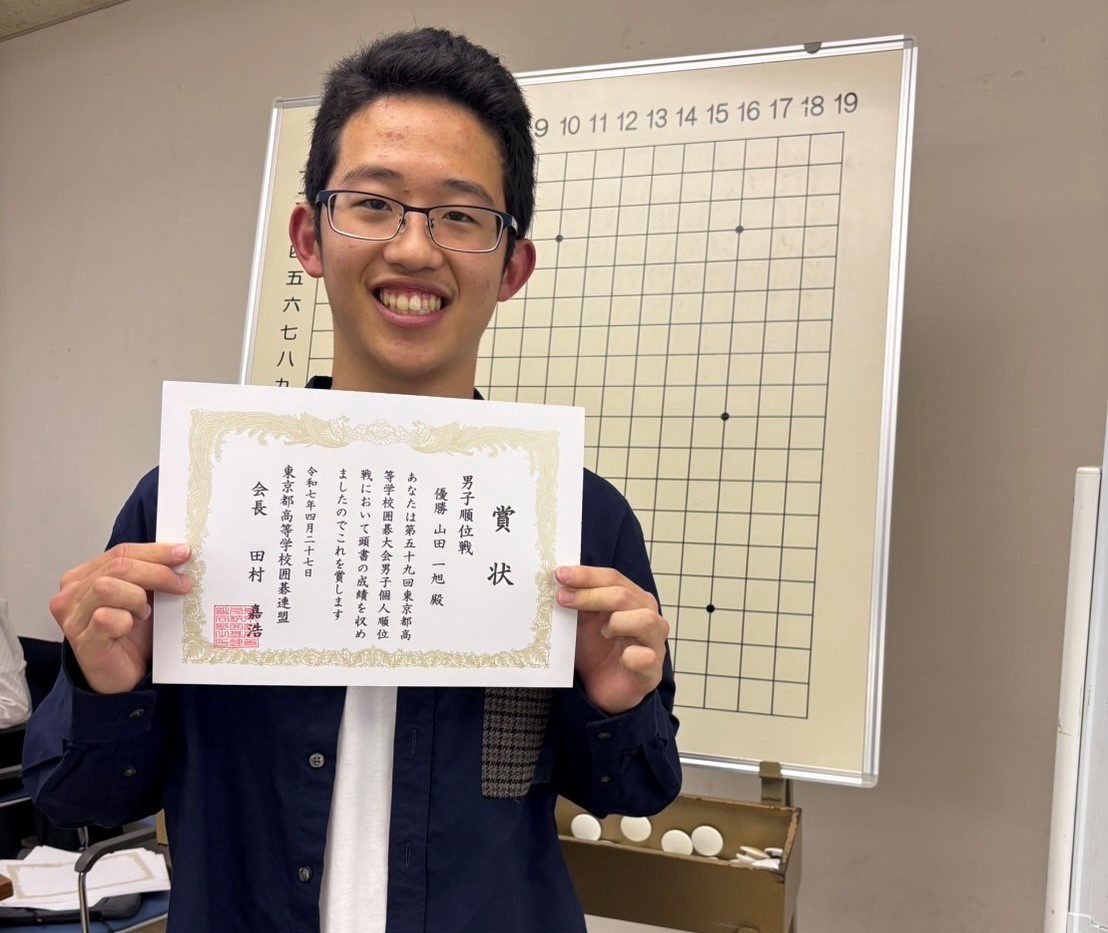 賞状
男子順位戦
優勝 山田 一旭 殿
あなたは第五十九回東京都高
等学校囲碁大会男子個人順位
戦において頭書の成績を収め
ましたのでこれを賞します
令和七年四月二十七日
東京都高等学校囲碁連盟
会長 田村 嘉浩
9 10 11 12 13 14 15 16 17 18 19
四
五
六
七
八
九